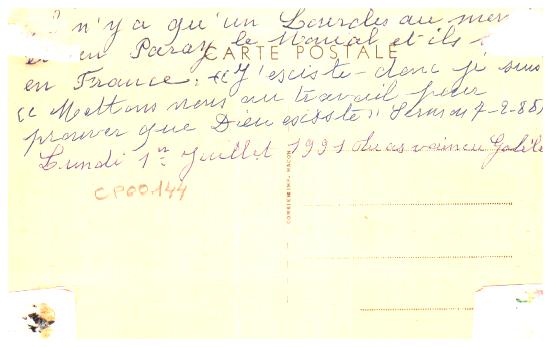 n'y a qu'un Lourdes au mon
en Paray le Monial et ils
CARTE POSTALE
en France. "J'existe donc je suis
" Mettons nous au travail pour
prouver que Dieu existe" Sermon 7-2-88
Lundi 1er Juillet 1991 tu as vaincu Galilé
CP60144
COMBIER IMP. MACON